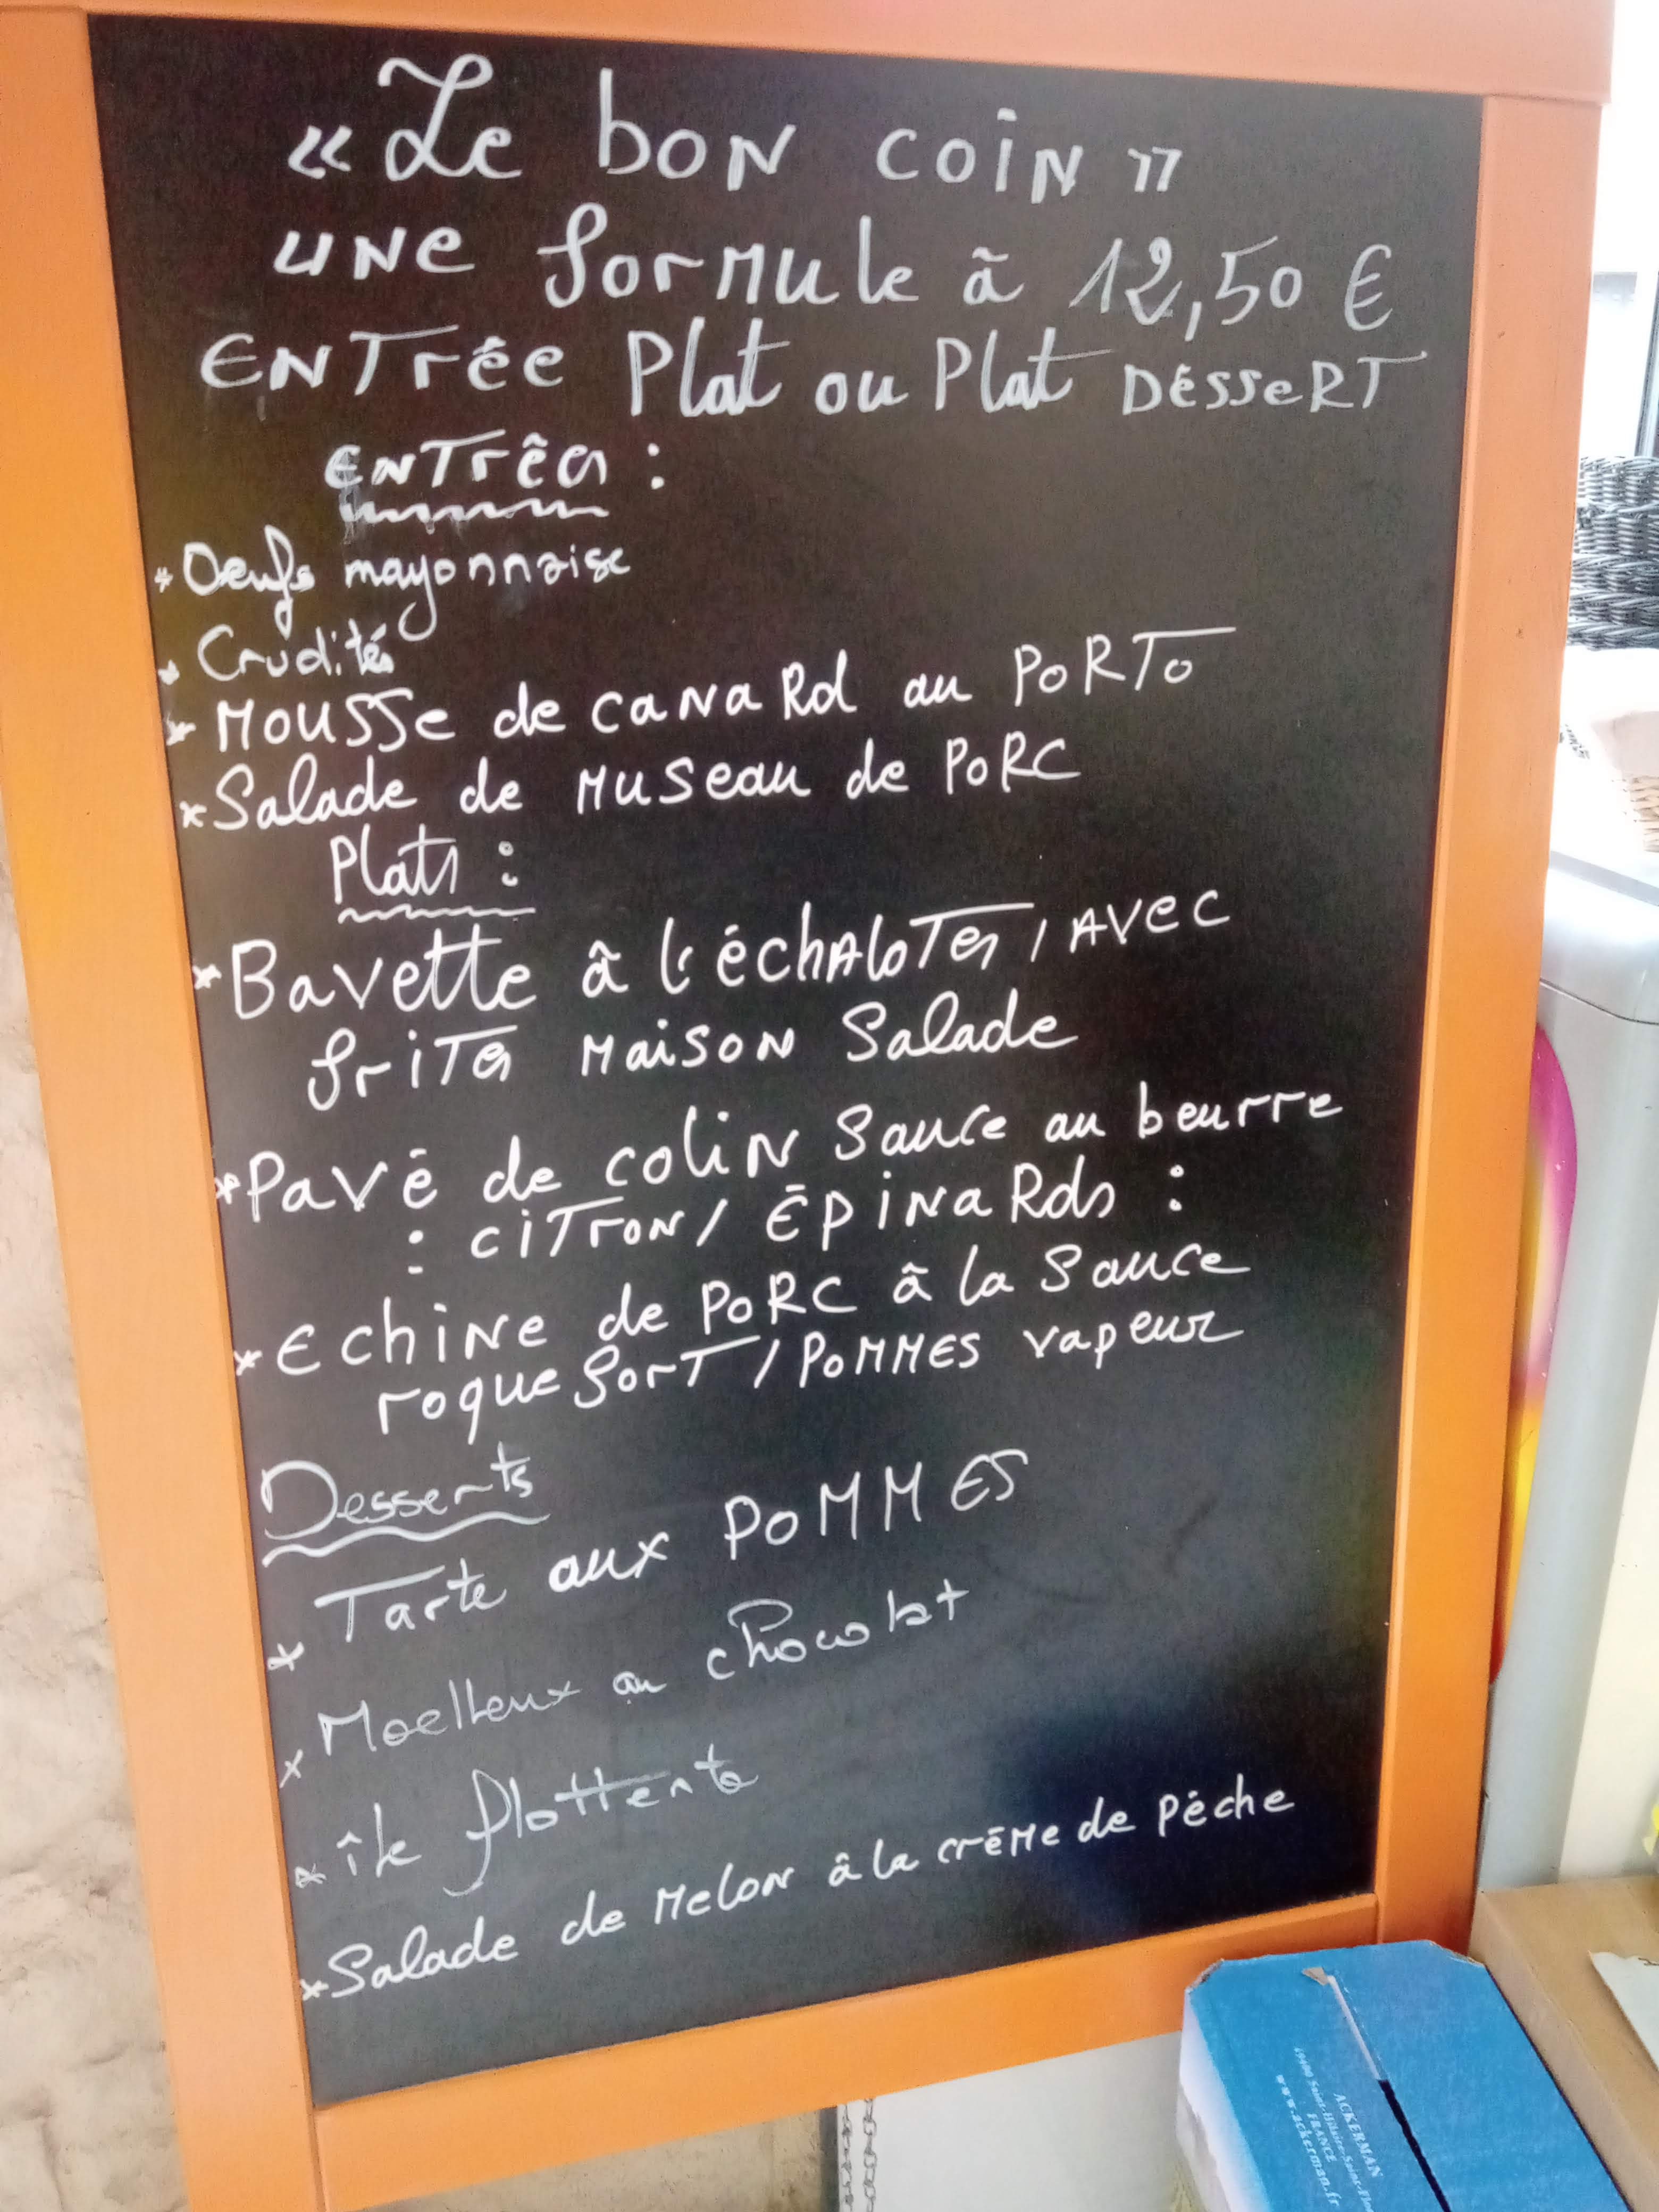 « Le bon coin »
une formule à 12,50 €
Entrée Plat ou Plat Déssert
Entrées :
* Oeufs mayonnaise
* Crudités
* Mousse de canard au Porto
* Salade de museau de porc
Plats :
* Bavette à l'échalotes / avec
frites maison salade
* Pavé de colin sauce au beurre
: citron / épinards :
* Echine de porc à la sauce
roquefort / pommes vapeur
Desserts
* Tarte aux pommes
* Moelleux au chocolat
* île flottente
* Salade de melon à la crème de pêche
ACKERMAN
49400 Saint-Hilaire-Saint-Flo
FRANCE
www.ackerman.fr